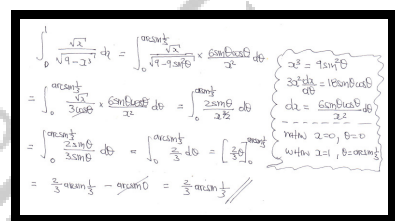 ∫₀¹ √x / √(9-x³) dx = ∫₀^(arcsin⅓) √x / √(9-9sin²θ) × 6sinθcosθ / x² dθ
= ∫₀^(arcsin⅓) √x / 3cosθ × 6sinθcosθ / x² dθ = ∫₀^(arcsin⅓) 2sinθ / x^(3/2) dθ
= ∫₀^(arcsin⅓) 2sinθ / 3sinθ dθ = ∫₀^(arcsin⅓) ⅔ dθ = [⅔θ]₀^(arcsin⅓)
= ⅔ arcsin⅓ - arcsin0 = ⅔ arcsin⅓
x³ = 9sin²θ
3x² dx/dθ = 18sinθcosθ
dx = 6sinθcosθ / x² dθ
WHEN x=0, θ=0
WHEN x=1, θ=arcsin⅓